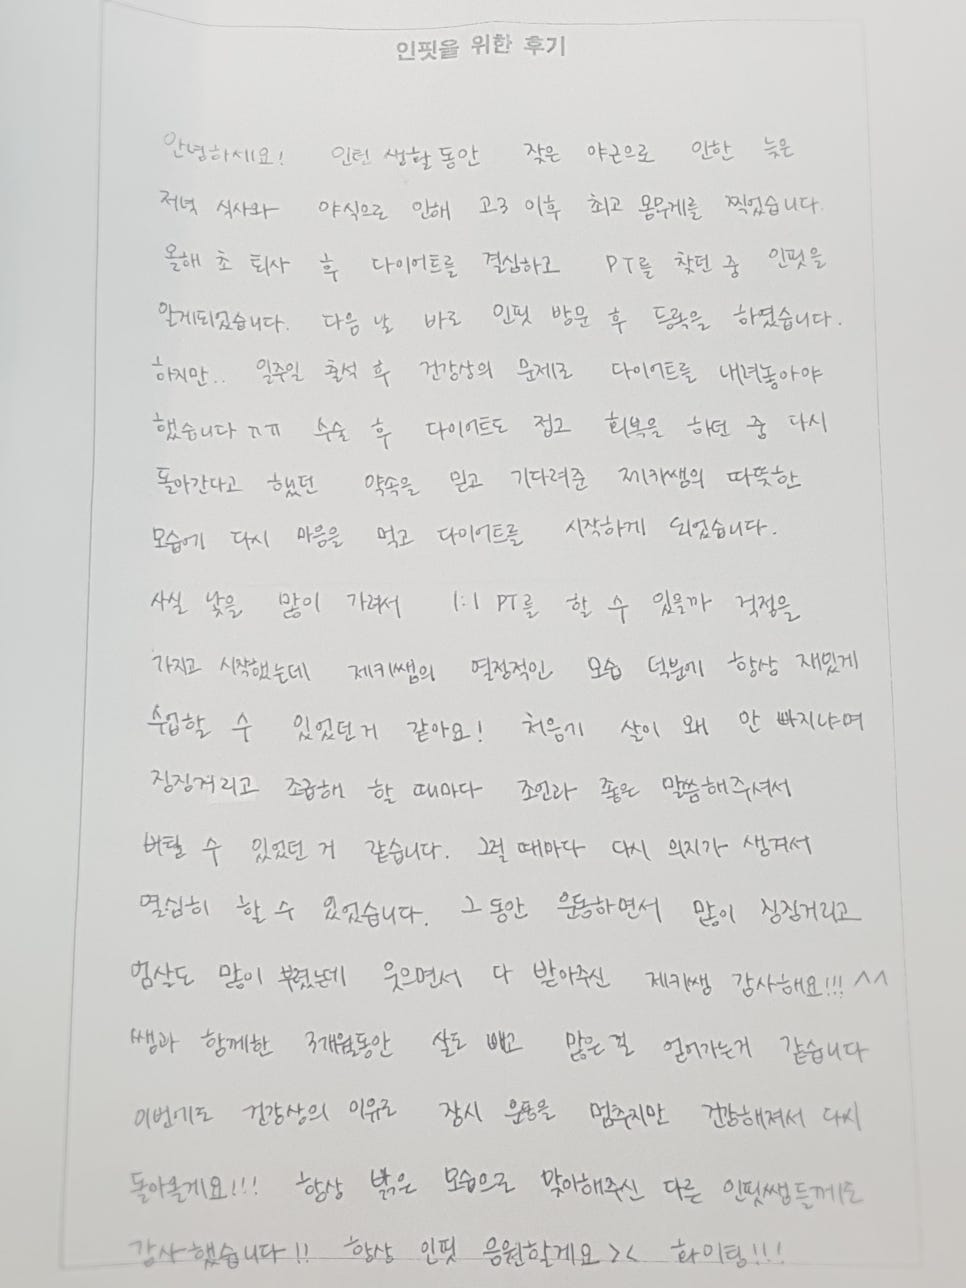 인핏을 위한 후기
안녕하세요! 인턴 생활동안 잦은 야근으로 인한 늦은
저녁 식사와 야식으로 인해 고3 이후 최고 몸무게를 찍었습니다.
올해 초 퇴사 후 다이어트를 결심하고 PT를 찾던 중 인핏을
알게되었습니다. 다음 날 바로 인핏 방문 후 등록을 하였습니다.
하지만.. 일주일 출석 후 건강상의 문제로 다이어트를 내려놓아야
했습니다 ㅠㅠ 수술 후 다이어트도 접고 회복을 하던 중 다시
돌아간다고 했던 약속을 믿고 기다려준 제키쌤의 따뜻한
모습에 다시 마음을 먹고 다이어트를 시작하게 되었습니다.
사실 낯을 많이 가려서 1:1 PT를 할 수 있을까 걱정을
가지고 시작했는데 제키쌤의 열정적인 모습 덕분에 항상 재밌게
수업할 수 있었던거 같아요! 처음에 살이 왜 안 빠지냐며
징징거리고 조급해 할 때마다 조언과 좋은 말씀해주셔서
버틸 수 있었던 거 같습니다. 그럴 때마다 다시 의지가 생겨서
열심히 할 수 있었습니다. 그 동안 운동하면서 많이 징징거리고
엄살도 많이 부렸는데 웃으면서 다 받아주신 제키쌤 감사해요!!! ^^
쌤과 함께한 3개월동안 살도 빼고 많은 걸 얻어가는거 같습니다
이번에도 건강상의 이유로 잠시 운동을 멈추지만 건강해져서 다시
돌아올게요!!! 항상 밝은 모습으로 맞아해주신 다른 인핏쌤들께도
감사했습니다!! 항상 인핏 응원할게요 >< 화이팅!!!